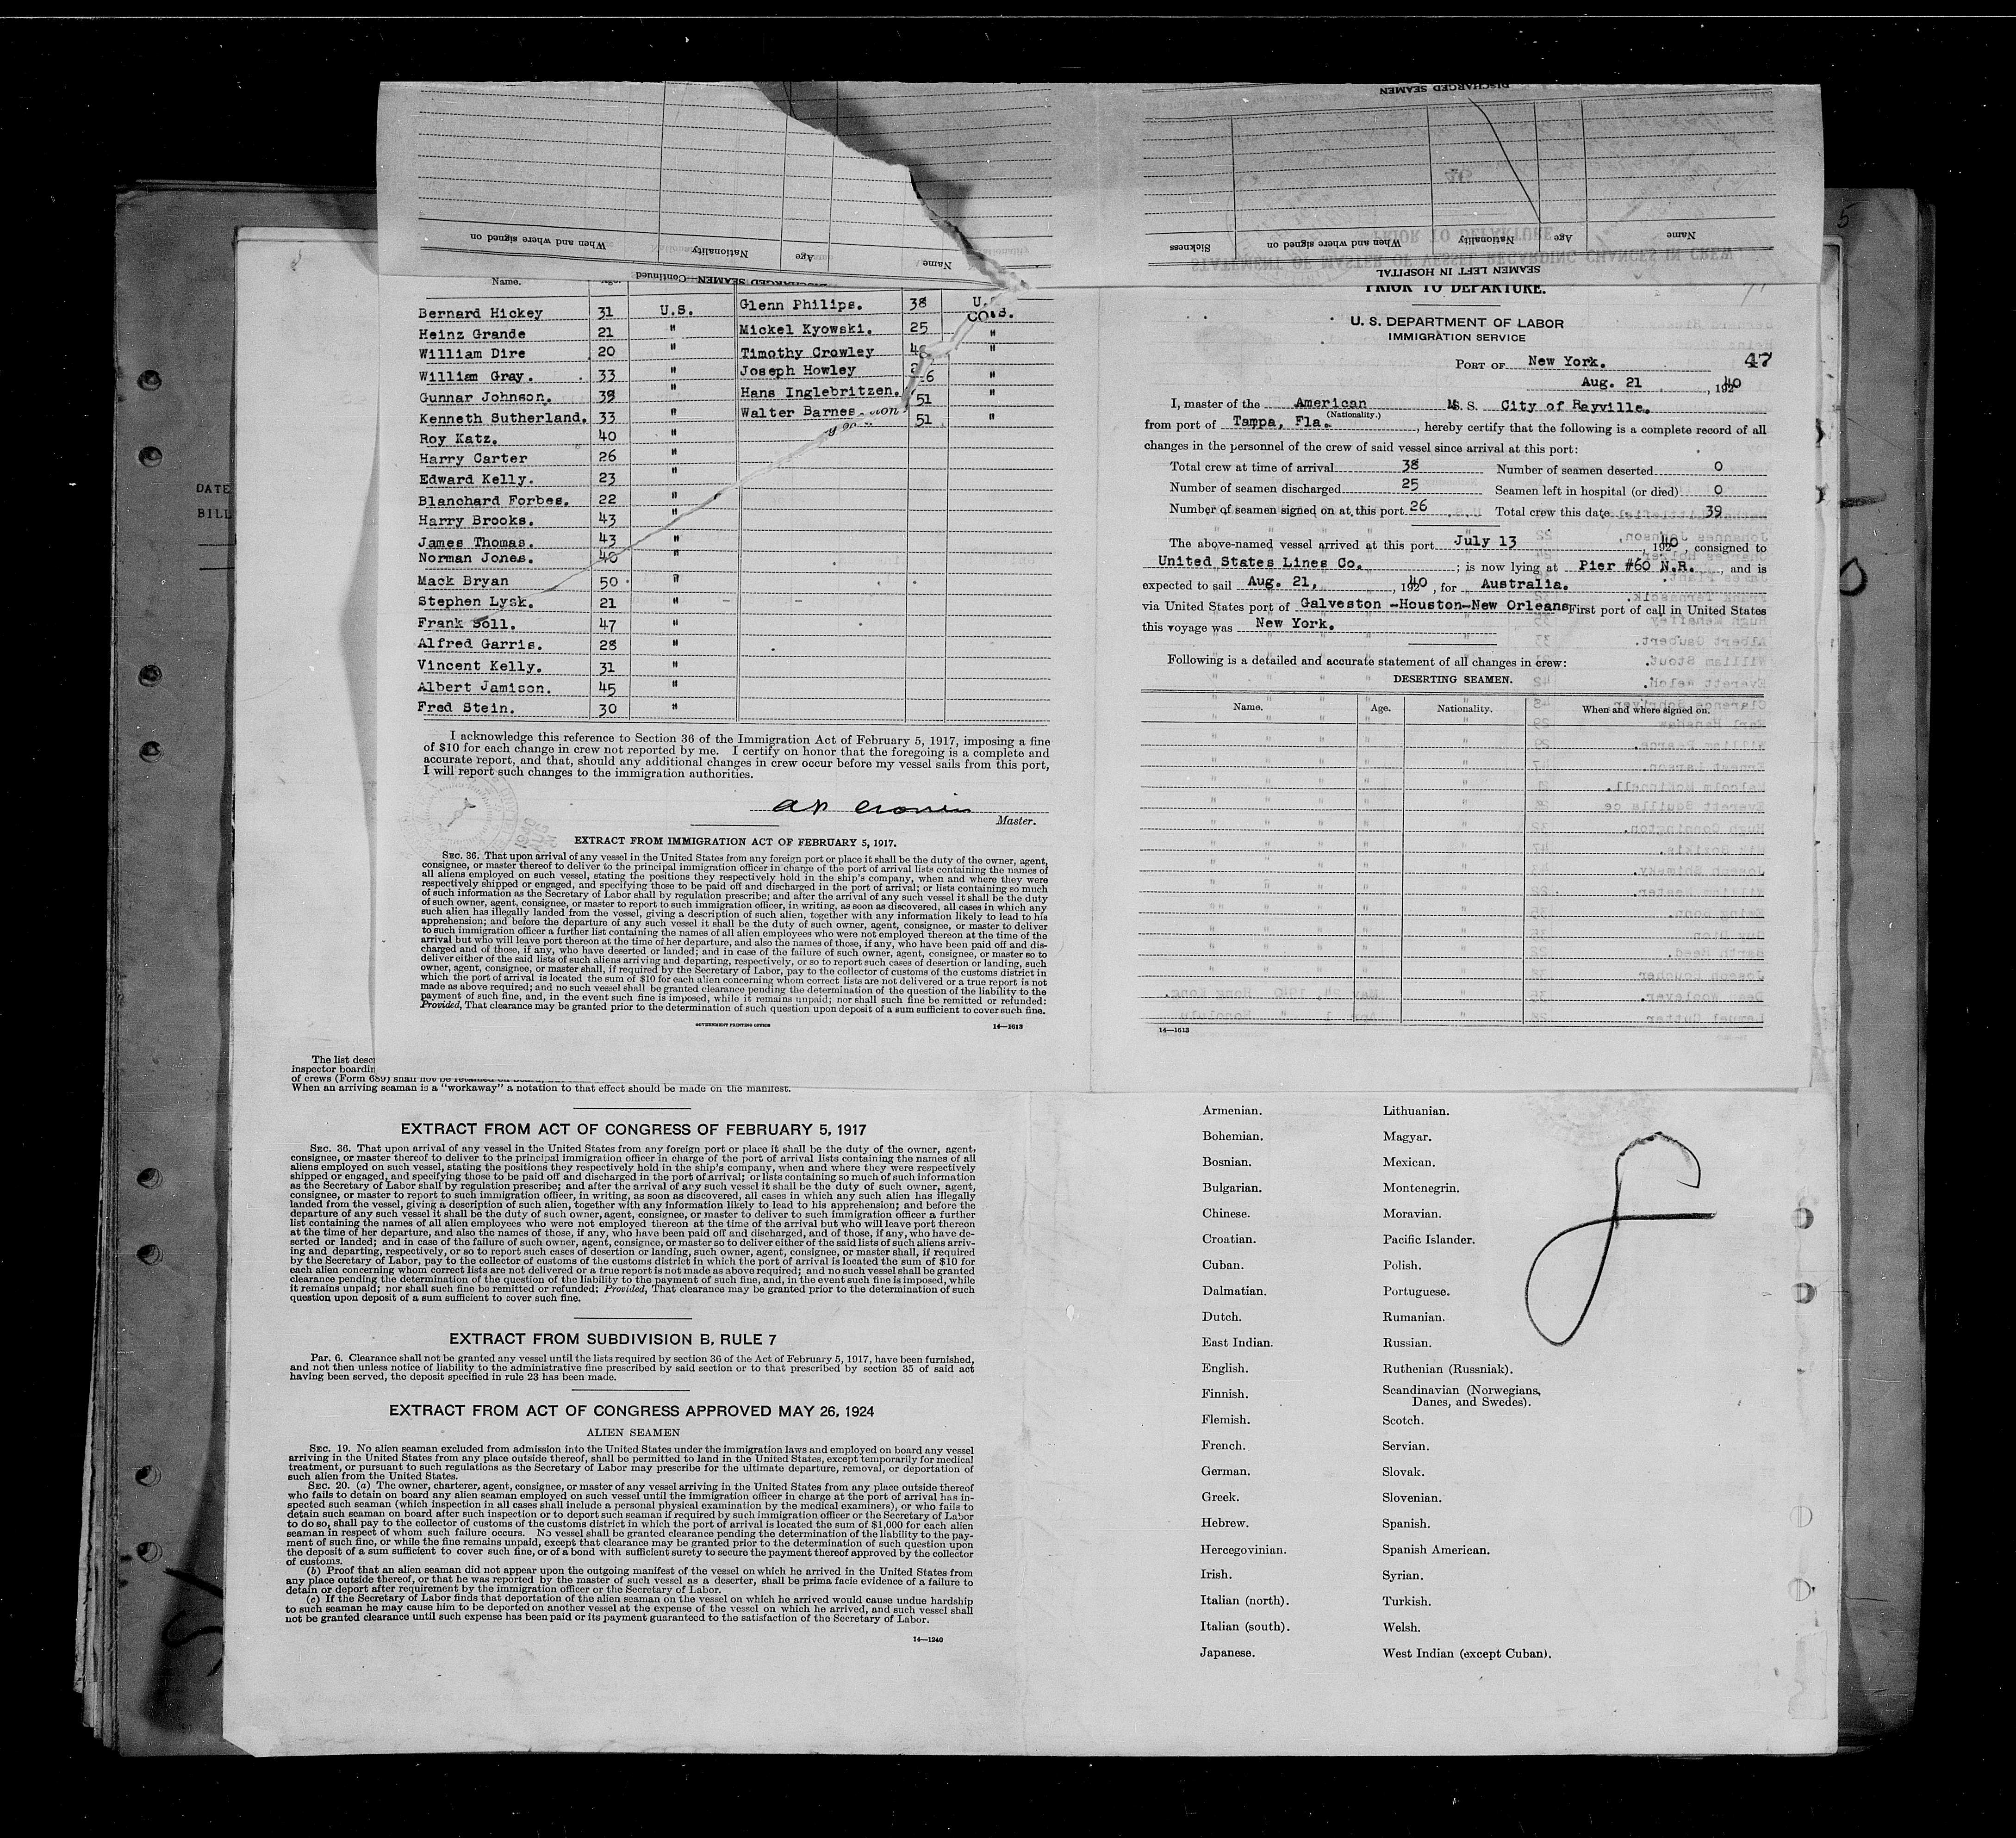 DISCHARGED SEAMEN
When and where signed on
Nationality
Age
Name
Sickness
When and where signed on
Nationality
Age
Name
SEAMEN LEFT IN HOSPITAL
DISCHARGED SEAMEN—Continued
Name.
Bernard Hickey 31 U.S. Glenn Philips. 38 U.S.
Heinz Grande 21 " Mickel Kyowski. 25 "
William Dire 20 " Timothy Crowley "
William Gray. 33 " Joseph Howley "
Gunnar Johnson. 39 " Hans Inglebritzen. 51
Kenneth Sutherland. 33 " Walter Barnes 51 "
Roy Katz. 40 "
Harry Carter 26 "
Edward Kelly. 23 "
Blanchard Forbes. 22 "
Harry Brooks. 43 "
James Thomas. 43 "
Norman Jones. 40 "
Mack Bryan 50 "
Stephen Lysk. 21 "
Frank Soll. 47 "
Alfred Garris. 28 "
Vincent Kelly. 31 "
Albert Jamison. 45 "
Fred Stein. 30 "
I acknowledge this reference to Section 36 of the Immigration Act of February 5, 1917, imposing a fine
of $10 for each change in crew not reported by me. I certify on honor that the foregoing is a complete and
accurate report, and that, should any additional changes in crew occur before my vessel sails from this port,
I will report such changes to the immigration authorities.
AP Cronin
Master.
EXTRACT FROM IMMIGRATION ACT OF FEBRUARY 5, 1917.
SEC. 36. That upon arrival of any vessel in the United States from any foreign port or place it shall be the duty of the owner, agent,
consignee, or master thereof to deliver to the principal immigration officer in charge of the port of arrival lists containing the names of
all aliens employed on such vessel, stating the positions they respectively hold in the ship's company, when and where they were
respectively shipped or engaged, and specifying those to be paid off and discharged in the port of arrival; or lists containing so much
of such information as the Secretary of Labor shall by regulation prescribe; and after the arrival of any such vessel it shall be the duty
of such owner, agent, consignee, or master to report to such immigration officer, in writing, as soon as discovered, all cases in which any
such alien has illegally landed from the vessel, giving a description of such alien, together with any information likely to lead to his
apprehension; and before the departure of any such vessel it shall be the duty of such owner, agent, consignee, or master to deliver
to such immigration officer a further list containing the names of all alien employees who were not employed thereon at the time of the
arrival but who will leave port thereon at the time of her departure, and also the names of those, if any, who have been paid off and dis-
charged and of those, if any, who have deserted or landed; and in case of the failure of such owner, agent, consignee, or master so to
deliver either of the said lists of such aliens arriving and departing, respectively, or so to report such cases of desertion or landing, such
owner, agent, consignee, or master shall, if required by the Secretary of Labor, pay to the collector of customs of the customs district in
which the port of arrival is located the sum of $10 for each alien concerning whom correct lists are not delivered or a true report is not
made as above required; and no such vessel shall be granted clearance pending the determination of the question of the liability to the
payment of such fine, and, in the event such fine is imposed, while it remains unpaid; nor shall such fine be remitted or refunded:
Provided, That clearance may be granted prior to the determination of such question upon deposit of a sum sufficient to cover such fine.
GOVERNMENT PRINTING OFFICE 14—1613
PRIOR TO DEPARTURE.
U. S. DEPARTMENT OF LABOR
IMMIGRATION SERVICE
PORT OF New York. 47
Aug. 21, 1940
I, master of the American M. S. City of Rayville.
(Nationality.)
from port of Tampa, Fla., hereby certify that the following is a complete record of all
changes in the personnel of the crew of said vessel since arrival at this port:
Total crew at time of arrival 38 Number of seamen deserted 0
Number of seamen discharged 25 Seamen left in hospital (or died) 0
Number of seamen signed on at this port 26 Total crew this date 39
The above-named vessel arrived at this port July 13 1940, consigned to
United States Lines Co.; is now lying at Pier #60 N.R., and is
expected to sail Aug. 21, 1940, for Australia.
via United States port of Galveston -Houston-New Orleans First port of call in United States
this voyage was New York.
Following is a detailed and accurate statement of all changes in crew:
DESERTING SEAMEN.
Name. Age. Nationality. When and where signed on.
14—1613
DATE
BILL
5
The list desc
inspector boardin
of crews (Form 689) shall not be
When an arriving seaman is a "workaway" a notation to that effect should be made on the manifest.
EXTRACT FROM ACT OF CONGRESS OF FEBRUARY 5, 1917
SEC. 36. That upon arrival of any vessel in the United States from any foreign port or place it shall be the duty of the owner, agent,
consignee, or master thereof to deliver to the principal immigration officer in charge of the port of arrival lists containing the names of all
aliens employed on such vessel, stating the positions they respectively hold in the ship's company, when and where they were respectively
shipped or engaged, and specifying those to be paid off and discharged in the port of arrival; or lists containing so much of such information
as the Secretary of Labor shall by regulation prescribe; and after the arrival of any such vessel it shall be the duty of such owner, agent,
consignee, or master to report to such immigration officer, in writing, as soon as discovered, all cases in which any such alien has illegally
landed from the vessel, giving a description of such alien, together with any information likely to lead to his apprehension; and before the
departure of any such vessel it shall be the duty of such owner, agent, consignee, or master to deliver to such immigration officer a further
list containing the names of all alien employees who were not employed thereon at the time of the arrival but who will leave port thereon
at the time of her departure, and also the names of those, if any, who have been paid off and discharged, and of those, if any, who have de-
serted or landed; and in case of the failure of such owner, agent, consignee, or master so to deliver either of the said lists of such aliens arriv-
ing and departing, respectively, or so to report such cases of desertion or landing, such owner, agent, consignee, or master shall, if required
by the Secretary of Labor, pay to the collector of customs of the customs district in which the port of arrival is located the sum of $10 for
each alien concerning whom correct lists are not delivered or a true report is not made as above required; and no such vessel shall be granted
clearance pending the determination of the question of the liability to the payment of such fine, and, in the event such fine is imposed, while
it remains unpaid; nor shall such fine be remitted or refunded: Provided, That clearance may be granted prior to the determination of such
question upon deposit of a sum sufficient to cover such fine.
EXTRACT FROM SUBDIVISION B, RULE 7
Par. 6. Clearance shall not be granted any vessel until the lists required by section 36 of the Act of February 5, 1917, have been furnished,
and not then unless notice of liability to the administrative fine prescribed by said section or to that prescribed by section 35 of said act
having been served, the deposit specified in rule 23 has been made.
EXTRACT FROM ACT OF CONGRESS APPROVED MAY 26, 1924
ALIEN SEAMEN
SEC. 19. No alien seaman excluded from admission into the United States under the immigration laws and employed on board any vessel
arriving in the United States from any place outside thereof, shall be permitted to land in the United States, except temporarily for medical
treatment, or pursuant to such regulations as the Secretary of Labor may prescribe for the ultimate departure, removal, or deportation of
such alien from the United States.
SEC. 20. (a) The owner, charterer, agent, consignee, or master of any vessel arriving in the United States from any place outside thereof
who fails to detain on board any alien seaman employed on such vessel until the immigration officer in charge at the port of arrival has in-
spected such seaman (which inspection in all cases shall include a personal physical examination by the medical examiners), or who fails to
detain such seaman on board after such inspection or to deport such seaman if required by such immigration officer or the Secretary of Labor
to do so, shall pay to the collector of customs of the customs district in which the port of arrival is located the sum of $1,000 for each alien
seaman in respect of whom such failure occurs. No vessel shall be granted clearance pending the determination of the liability to the pay-
ment of such fine, or while the fine remains unpaid, except that clearance may be granted prior to the determination of such question upon
the deposit of a sum sufficient to cover such fine, or of a bond with sufficient surety to secure the payment thereof approved by the collector
of customs.
(b) Proof that an alien seaman did not appear upon the outgoing manifest of the vessel on which he arrived in the United States from
any place outside thereof, or that he was reported by the master of such vessel as a deserter, shall be prima facie evidence of a failure to
detain or deport after requirement by the immigration officer or the Secretary of Labor.
(c) If the Secretary of Labor finds that deportation of the alien seaman on the vessel on which he arrived would cause undue hardship
to such seaman he may cause him to be deported on another vessel at the expense of the vessel on which he arrived, and such vessel shall
not be granted clearance until such expense has been paid or its payment guaranteed to the satisfaction of the Secretary of Labor.
14—1240
Armenian. Lithuanian.
Bohemian. Magyar.
Bosnian. Mexican.
Bulgarian. Montenegrin.
Chinese. Moravian.
Croatian. Pacific Islander.
Cuban. Polish.
Dalmatian. Portuguese.
Dutch. Rumanian.
East Indian. Russian.
English. Ruthenian (Russniak).
Finnish. Scandinavian (Norwegians,
Danes, and Swedes).
Flemish. Scotch.
French. Servian.
German. Slovak.
Greek. Slovenian.
Hebrew. Spanish.
Hercegovinian. Spanish American.
Irish. Syrian.
Italian (north). Turkish.
Italian (south). Welsh.
Japanese. West Indian (except Cuban).